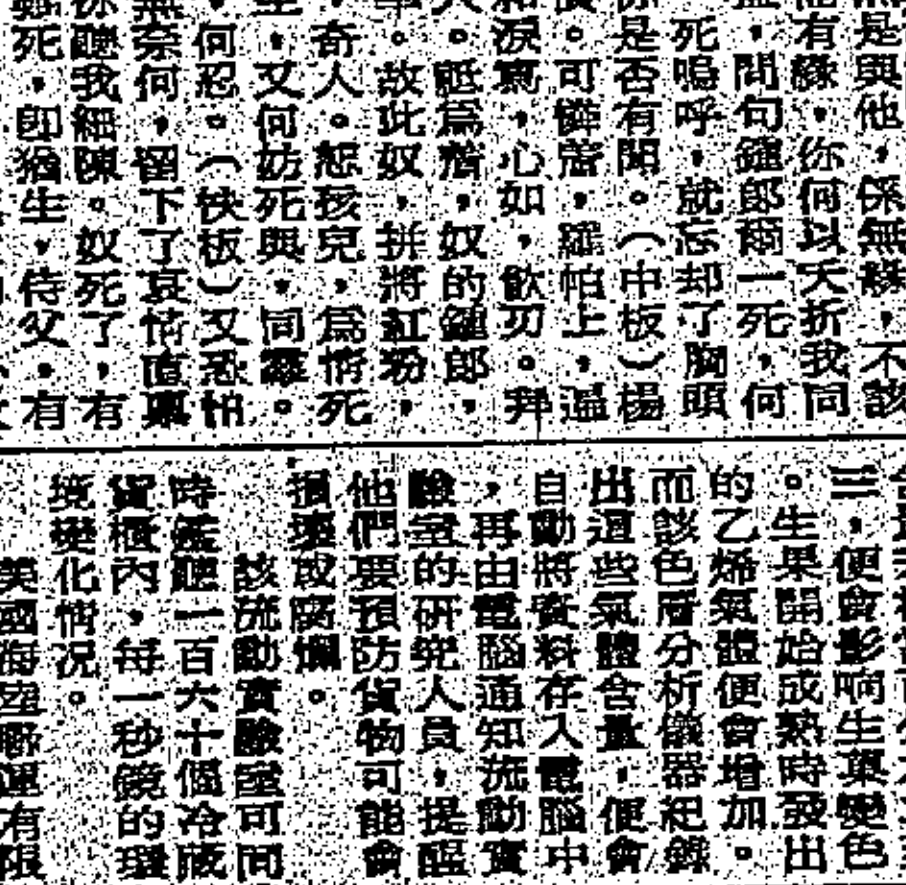 是與他，係無緣，不該
有緣，你何以夭折我同
，問句鍾郎爾一死，何
死嗚呼，就忘却了胸頭
是否有聞。（中板）楊
。可憐舊，羅帕上，逼
淚寫，心如，飲刃。拜
。甁爲薺，奴的鍾郎，
。故此奴，拼將紅粉，
奇人。恕孩兒，爲情死
，又何妨死與，同霧。
何忍。（快板）又恐怕
無奈何，留下了哀情直稟
聽我細陳。奴死了，有
死，卽猶生，侍父，有
三，便會影响生菓變色
。生果開始成熟時發出
的乙烯氣體便會增加。
而該色層分析儀器紀錄
出這些氣體含量，便會
自動將資料存入電腦中
，再由電腦通知流動實
驗室的研究人員，提醒
他們要預防貨物可能會
損壞或腐爛。
該流動實驗室可同
時監聽一百六十個冷藏
貨櫃內，每一秒鐘的環
境變化情况。
美國海陸聯運有限